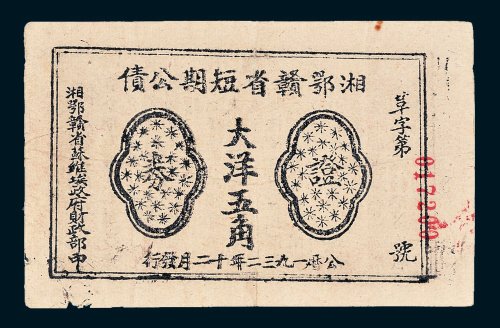 湘鄂贛省短期公債
草字第
號
證券
大洋五角
公曆一九三二年十二月發行
湘鄂贛省蘇維埃政府財政部印